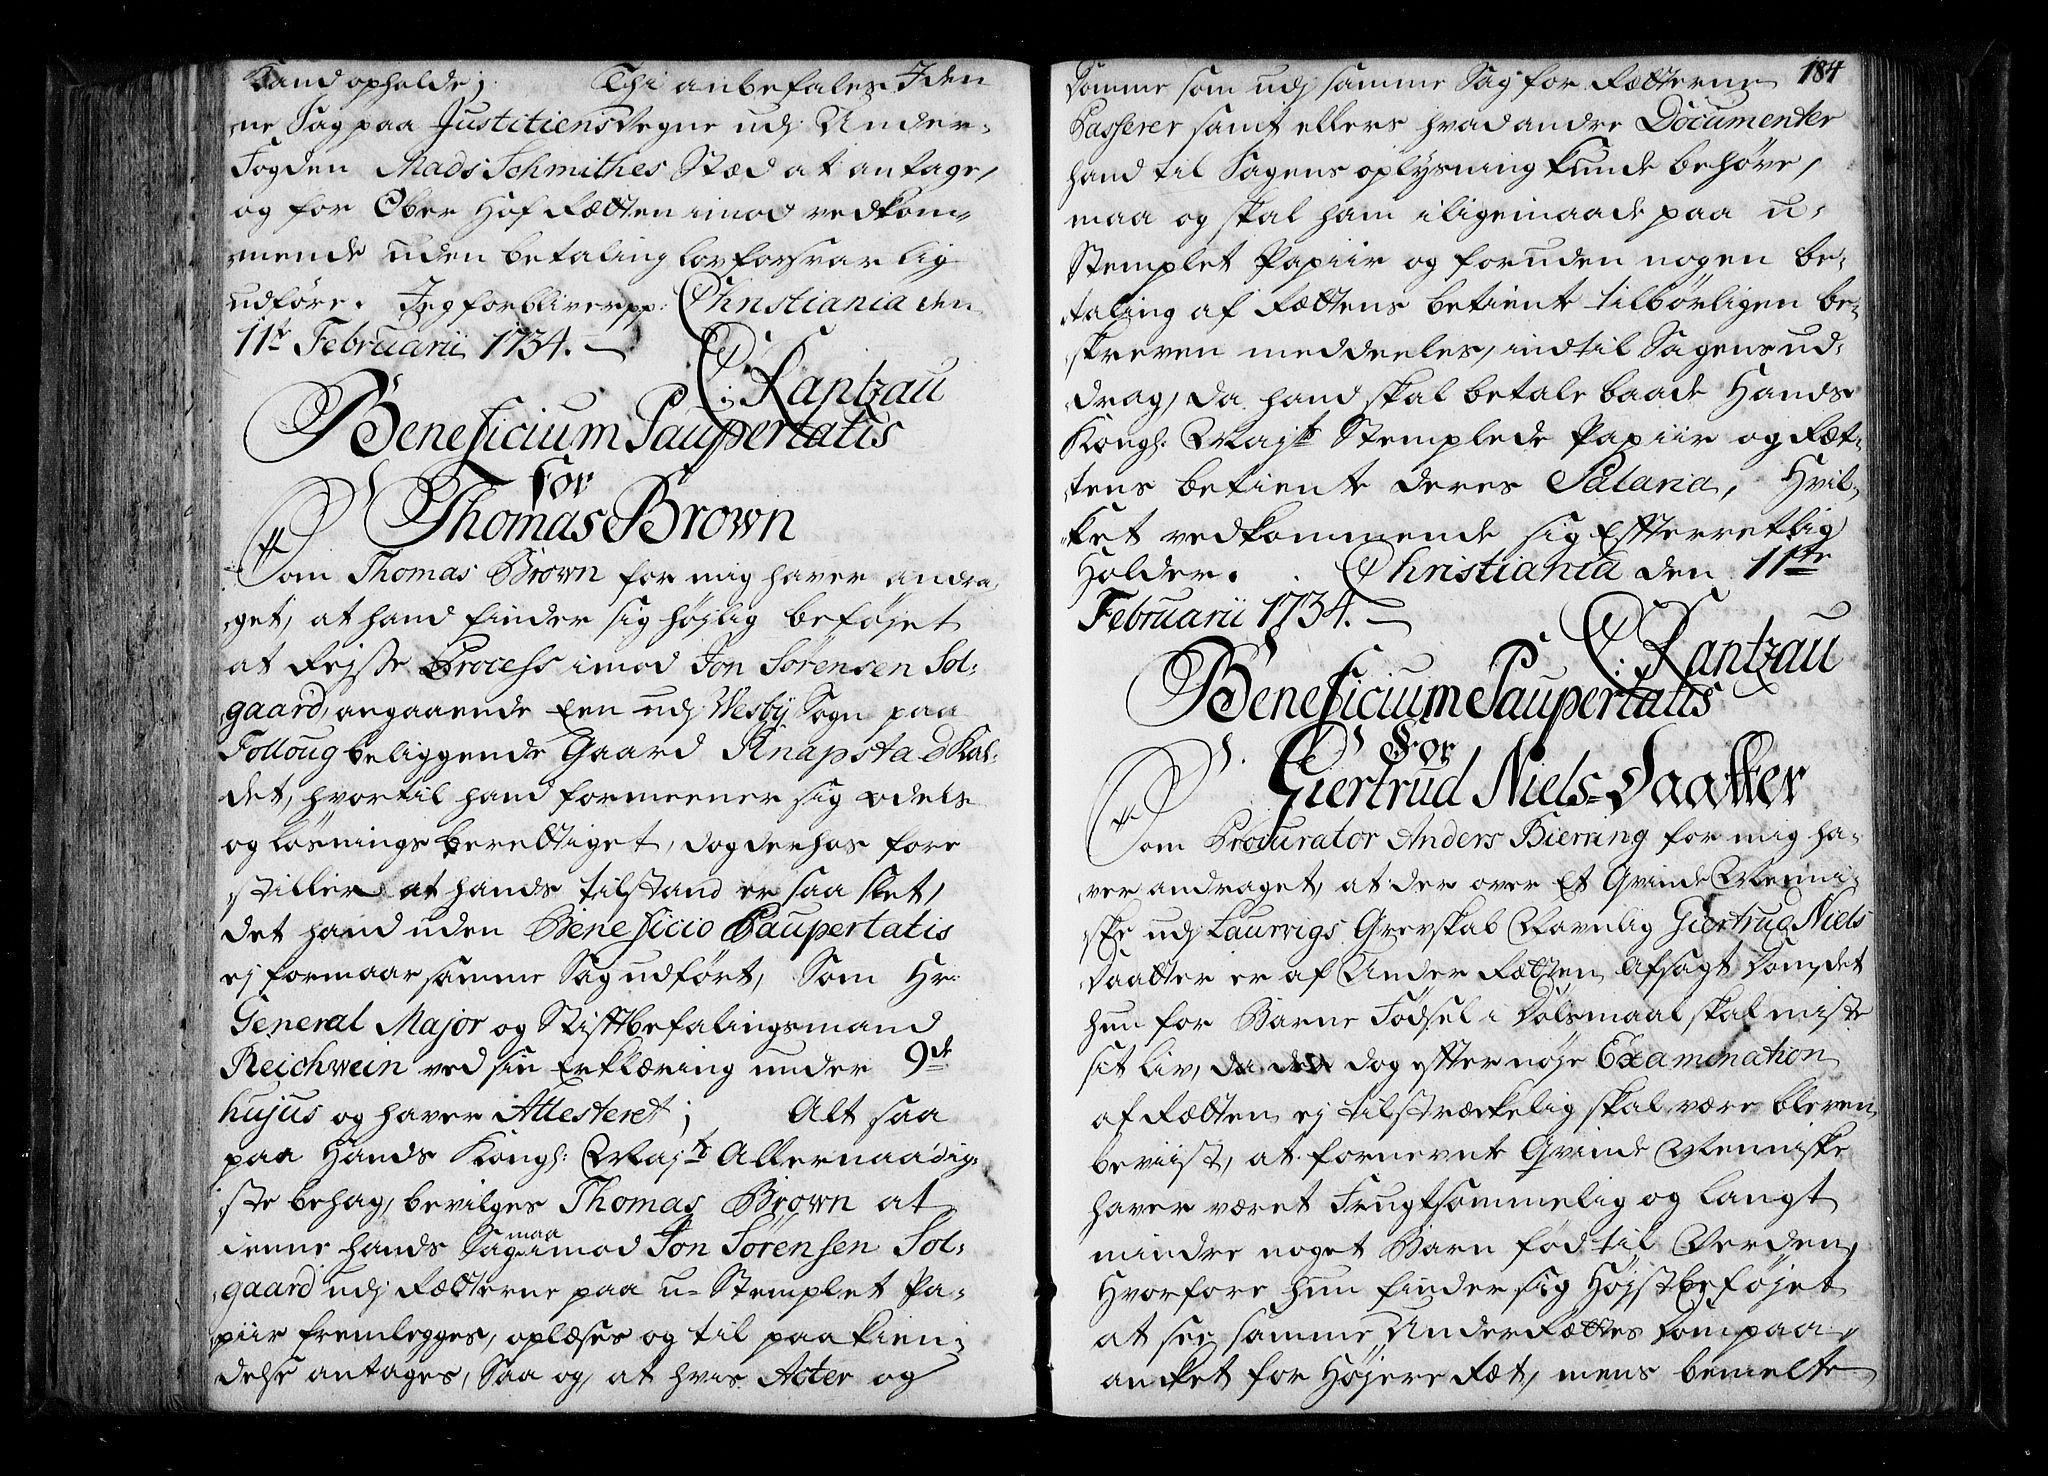 hand opholde; Thi anbefales I den
ne Sag paa Justitiens Vegne udj Under-
Fogden Mads Schmithes Stæd at antage,
og for Ober Hof Rætten imod vedkom-
mende uden betaling lovforsvarlig
udføre. Jeg forbliver pp: Christiania den
11te Februarii 1734. —
C: Rantzau
Beneficium Paupertatis
for
Thomas Brown
Som Thomas Brown for mig haver andra-
get, at hand finder sig højlig beføjet
at Rejse Process imod Jon Sørensen Sol-
gaard, angaaende Een udj Westbÿ Sogn paa
Folloug beliggende Gaard Knapstad Kal-
det, hvortil hand formeener sig odels
og løsnings berettiget, dog derhos fore
stiller at hands tilstand er saa slet,
det hand uden Beneficio Paupertatis
ej formaar samme Sag udført, Som Hr:
General Major og Stiftbefalingsmand
Reichwein ved sin Erklæring under 9de
hujus og haver Attesteret; Alt saa
paa Hands Kongl: Majts Allernaadig-
ste behag, bevilges Thomas Brown at
denne hands Sag maa imod Jon Sørensen Sol-
gaard udj Rætterne paa u-Stemplet Pa-
piir fremlegges, oplæses og til paakien-
delse antages, Saa og, at hvis Acter og
184
Domme som udj samme Sag for Rætterne
Passerer samt ellers hvad andre Documenter
hand til Sagens oplysning kunde behøve,
maa og skal ham iligemaade paa u-
Stemplet Papiir og foruden nogen be-
taling af Rættens betiente tilbørligen be-
skreven meddeeles, indtil Sagens ud-
drag, da hand skal betale baade Hands
Kongl: Majts Stemplede Papiir og Ræt-
tens betiente deres Salaria, Hvil-
ket vedkommende sig Efterrettlig
Holder. Christiania den 11te
Februarii 1734. —
C: Rantzau
Beneficium Paupertatis
For
Giertrud Niels-Daatter
Som Procurator Anders Bierring for mig ha-
ver andraget, at der over Et Qvinde Menni-
ske udj Laurvigs Grevskab Navnlig Giertrud Niels
Daatter er af Under Rætten Afsagt Dom, det
hun for Barne Fødsel i Dølsmaal skal miste
sit liv, da det dog efter nøje Examination
af Rætten ej tilstrækkelig skal være bleven
beviist, at fornevnte Qvinde Menniske
haver været Frugtsommelig og langt
mindre noget Barn fød til Verden,
Hvorfore hun finder sig Højst beføjet
at see samme UnderRættes Dom paa-
anket for Højere Ræt, mens bemelte